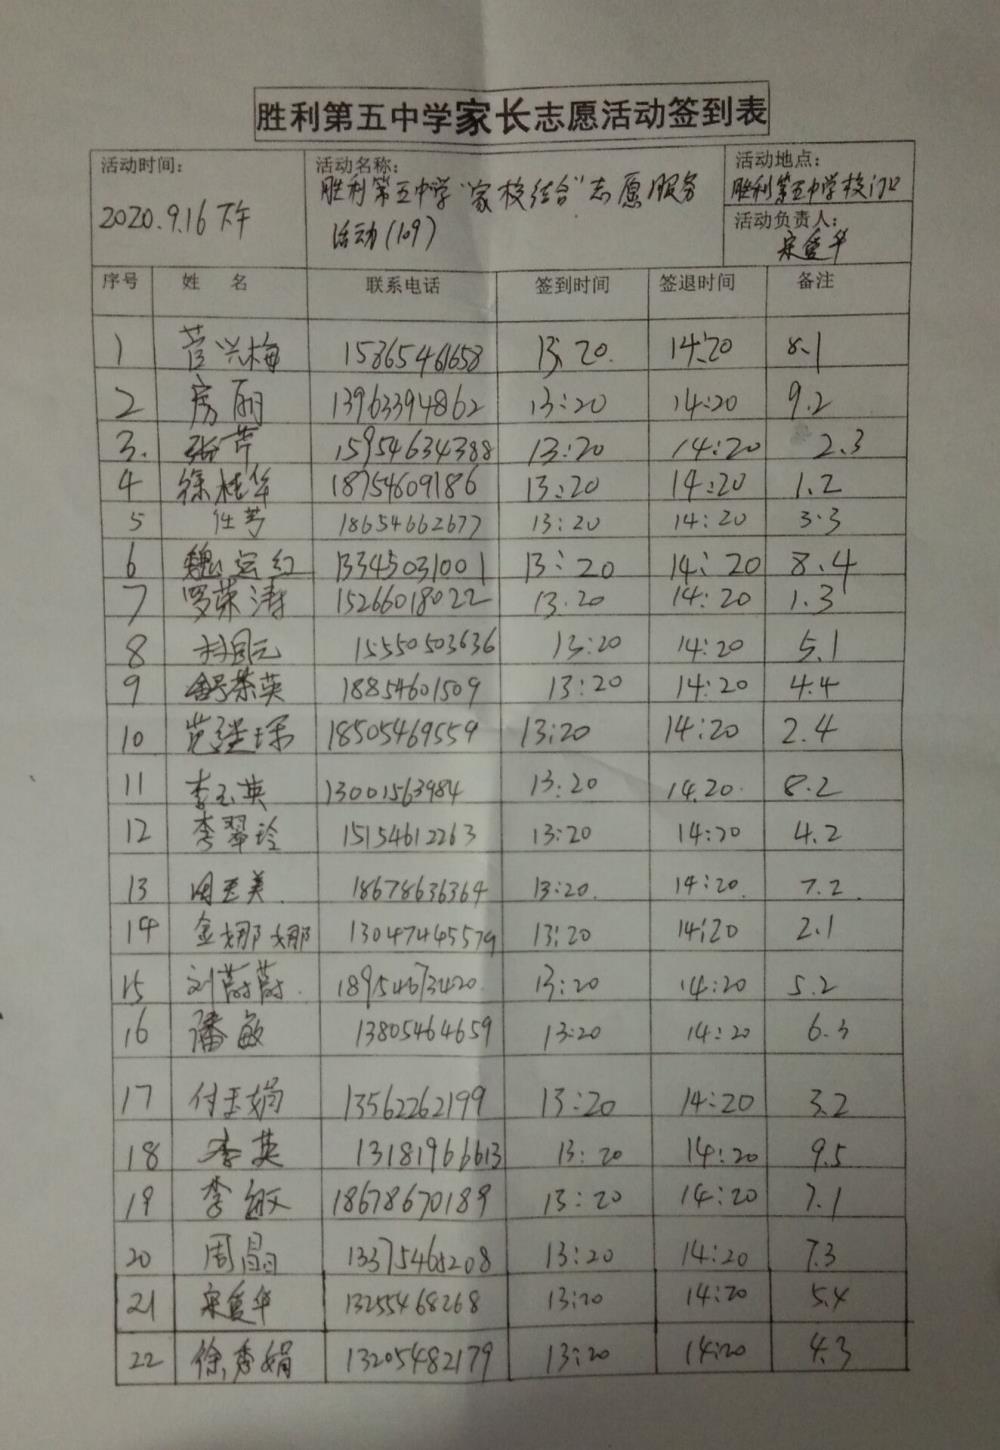 胜利第五中学家长志愿活动签到表
活动时间: 2020.9.16下午
活动名称: 胜利第五中学“家校结合”志愿服务
活动(109)
活动地点: 胜利第五中学校门口
活动负责人: 宋爱华
序号 姓 名 联系电话 签到时间 签退时间 备注
1 菅兴梅 15865461658 13:20. 14:20 8.1
2 房丽 13963394862 13:20 14:20 9.2
3. 张芹 15954634388 13:20 14:20 2.3
4 徐桂华 18754609186 13:20 14:20 1.2
5 任芳 18654662677 13:20 14:20 3.3
6 魏运红 13345031001 13:20 14:20 8.4
7 罗荣涛 15266018022 13.20 14:20 1.3
8 15550503636 13:20 14:20 5.1
9 荣英 18854601509 13:20 14:20 4.4
10 范 18505469559 13:20 14:20 2.4
11 李玉英 13001563984 13:20 14.20. 8.2
12 李翠玲 15154612263 13:20 14:20 4.2
13 周亚美. 18678636364 13:20. 14:20. 7.2
14 金娜娜 13047445579 13:20 14:20 2.1
15 刘蔚蔚. 18954673420. 13:20 14:20 5.2
16 潘敏 13805464659 13:20 14:20 6.3
17 付玉娟 13562262199 13:20 14:20 3.2
18 李英 13181966613 13:20 14:20 9.5
19 李敏 18678670189 13:20 14:20 7.1
20 周晶 13375465208 13:20 14:20 7.3
21 宋爱华 13255468268 13:20 14:20 5.4
22 徐秀娟 13205482179 13:20 14:20 4.3